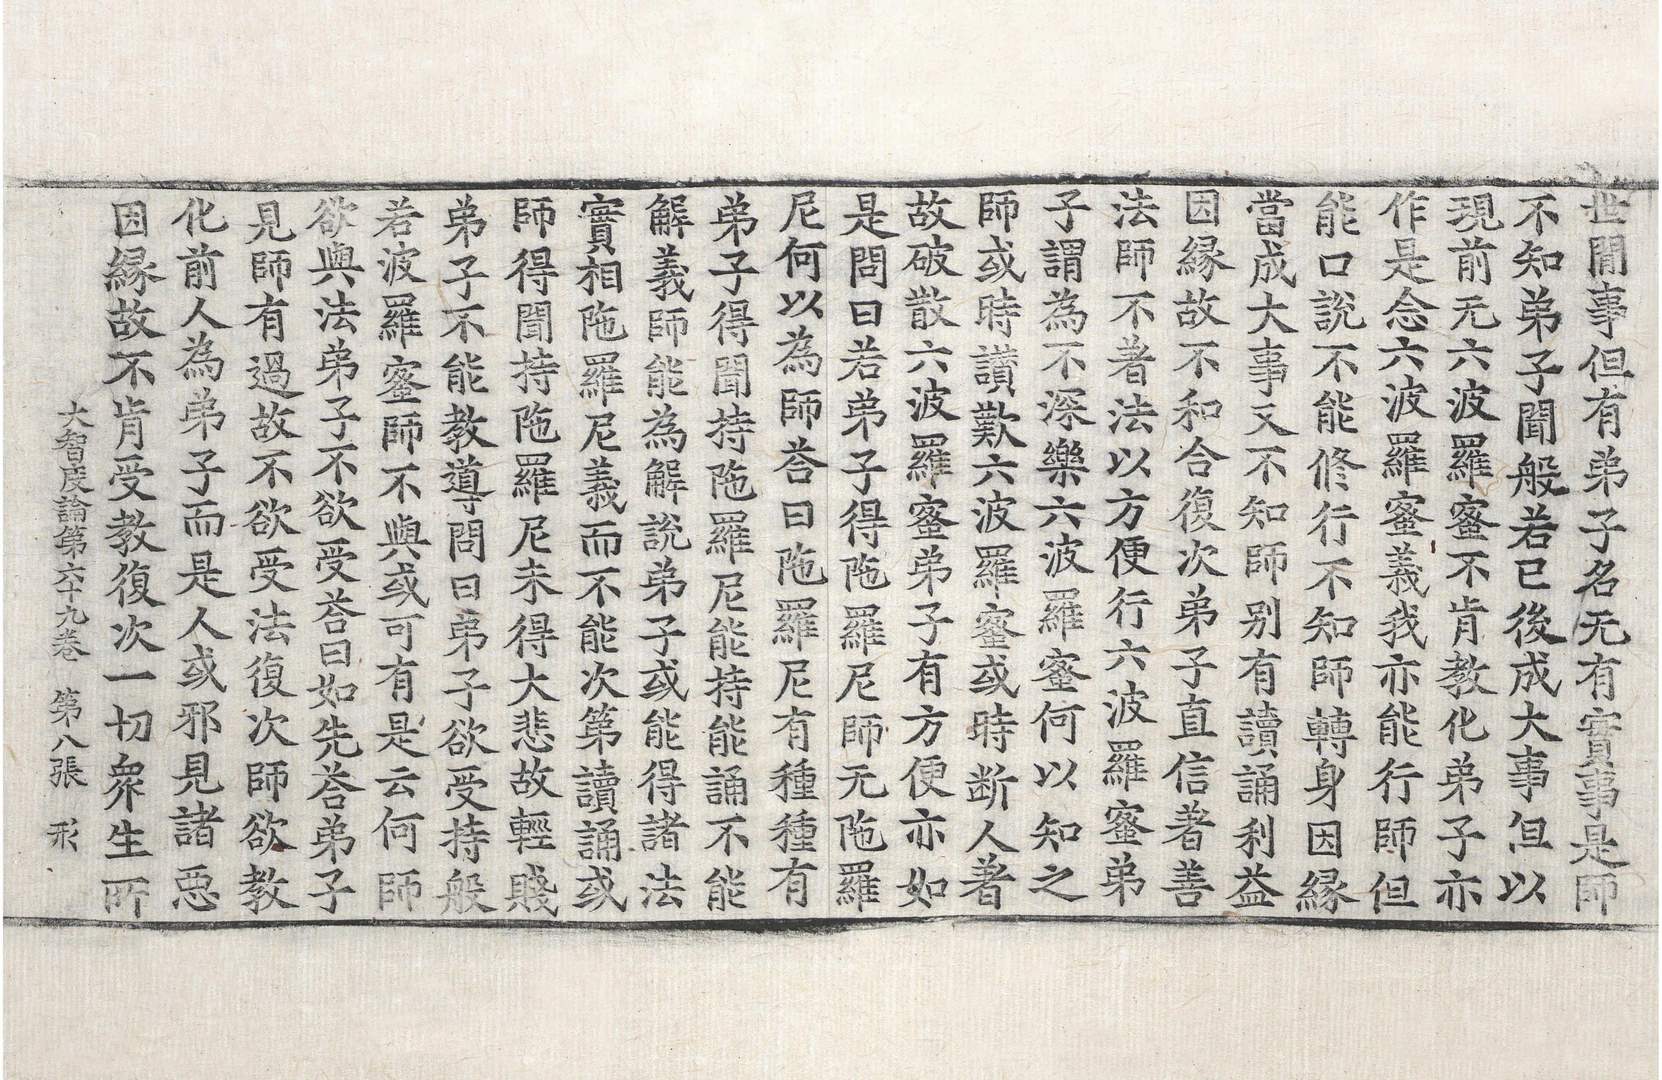 世閒事但有弟子名无有實事是師
不知弟子聞般若已後成大事但以
現前无六波羅蜜不肯教化弟子亦
作是念六波羅蜜義我亦能行師但
能口說不能修行不知師轉身因緣
當成大事又不知師別有讀誦利益
因緣故不和合復次弟子直信著善
法師不著法以方便行六波羅蜜弟
子謂為不深樂六波羅蜜何以知之
師或時讚歎六波羅蜜或時斷人著
故破散六波羅蜜弟子有方便亦如
是問曰若弟子得陁羅尼師无陁羅
尼何以為師荅曰陁羅尼有種種有
弟子得聞持陁羅尼能持能誦不能
解義師能為解說弟子或能得諸法
實相陁羅尼義而不能次第讀誦或
師得聞持陁羅尼未得大悲故輕賤
弟子不能教導問曰弟子欲受持般
若波羅蜜師不與或可有是云何師
欲與法弟子不欲受荅曰如先荅弟子
見師有過故不欲受法復次師欲教
化前人為弟子而是人或邪見諸惡
因緣故不肯受教復次一切衆生所
大智度論第六十九卷 第八張 形